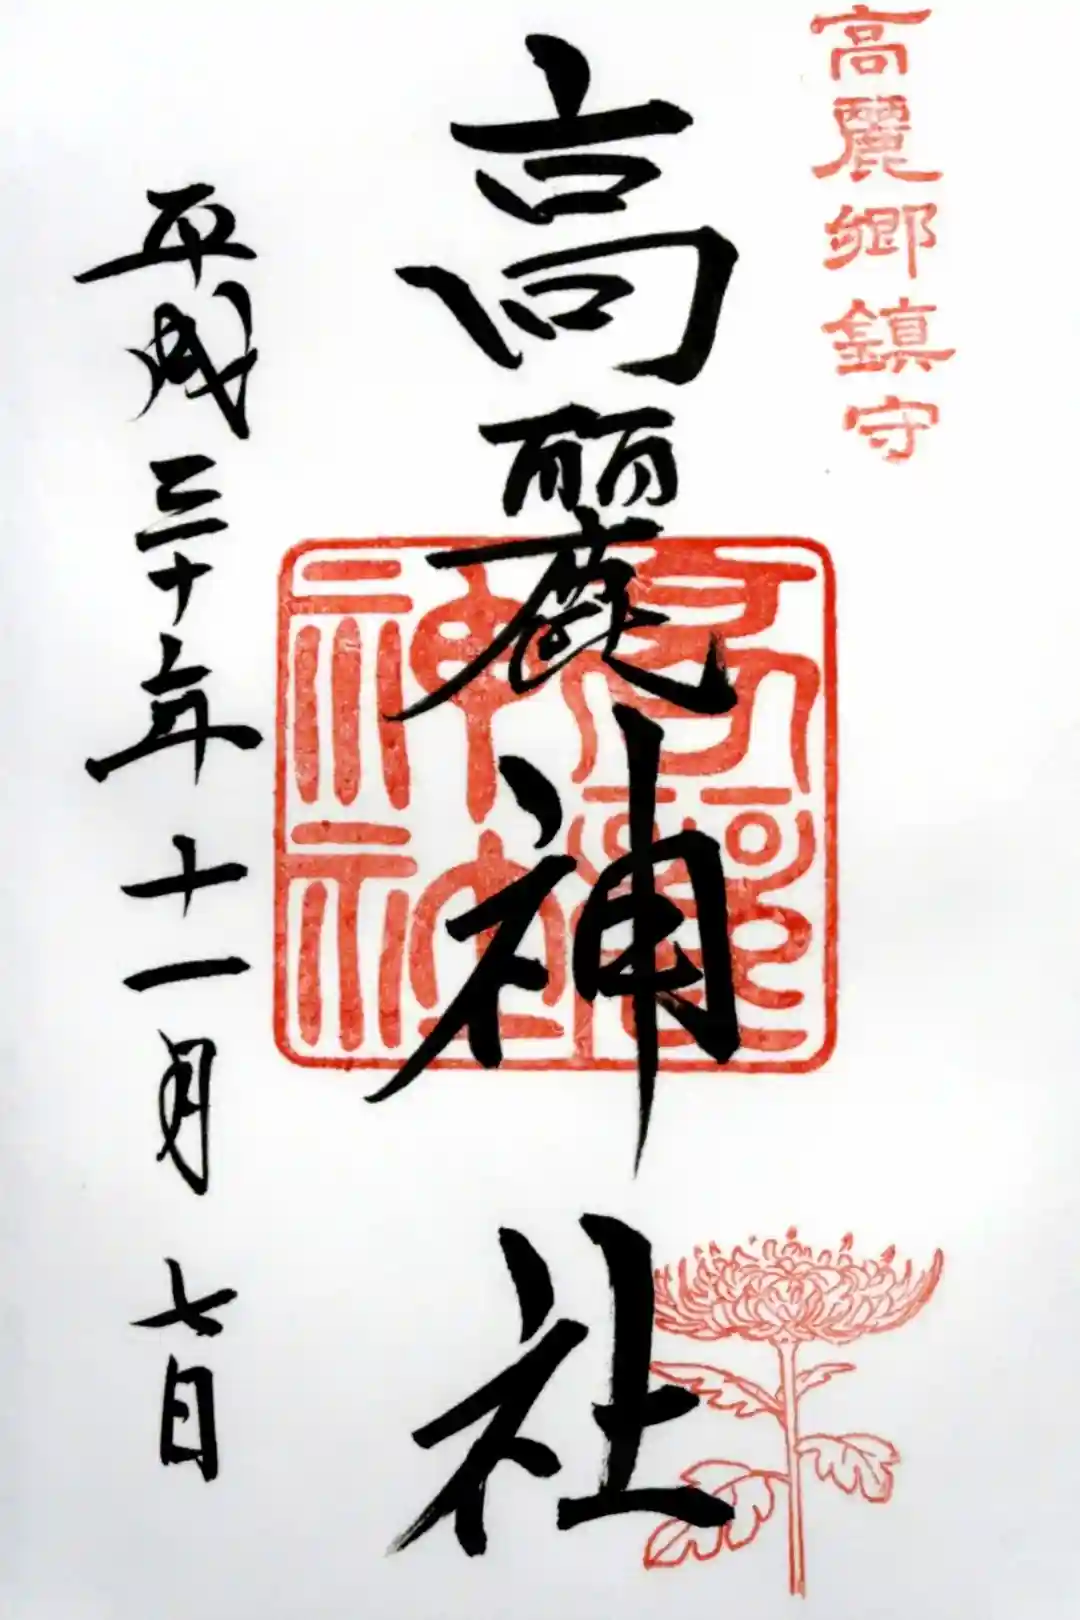 高麗郷鎮守
高麗神社
高麗
神社
平成三十年十一月七日